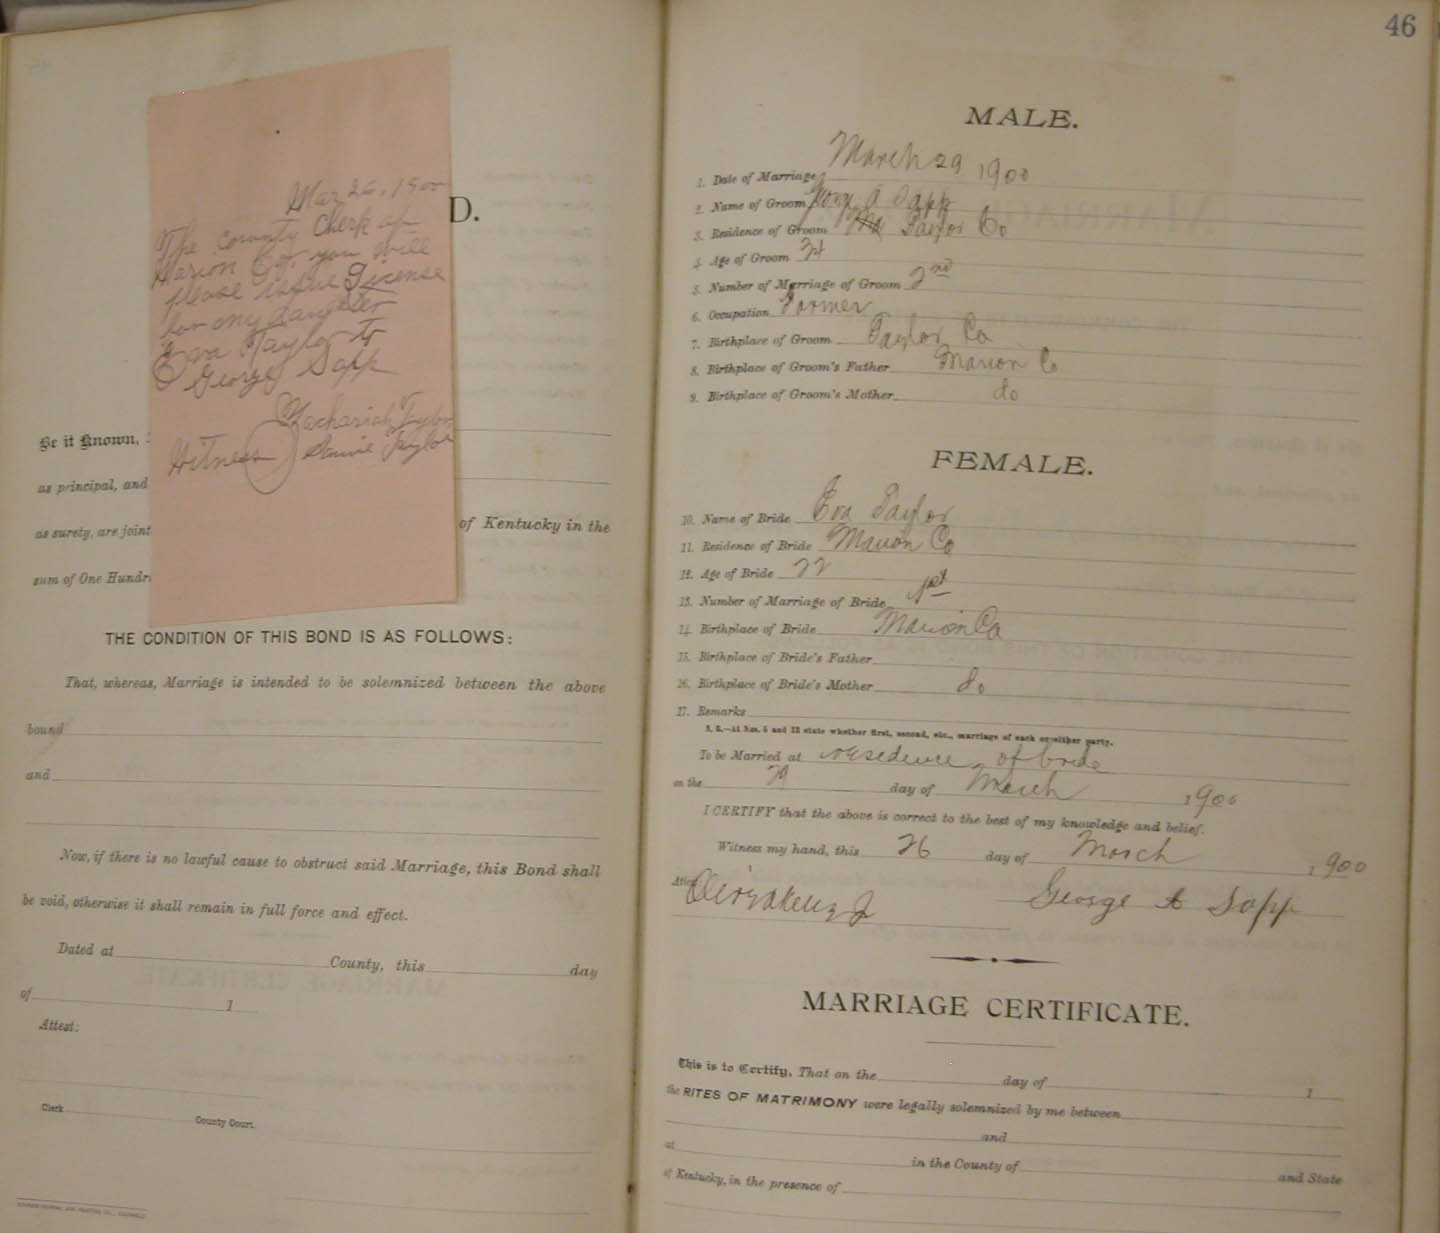 D.
Mar 26, 1900
The County Clerk of
Marion Co. you will
please issue License
for my daughter
Eva Taylor to
George Sapp
Zachariah Taylor
Witness Taylor
Be it Known,
as principal, and
as surety, are joint
of Kentucky in the
sum of One Hundr
THE CONDITION OF THIS BOND IS AS FOLLOWS:
That, whereas, Marriage is intended to be solemnized between the above
bound
and
Now, if there is no lawful cause to obstruct said Marriage, this Bond shall
be void, otherwise it shall remain in full force and effect.
Dated at County, this day
of 1
Attest:
Clerk County Court.
46
MALE.
1. Date of Marriage March 29 1900
2. Name of Groom A Sapp
3. Residence of Groom Taylor Co
4. Age of Groom
5. Number of Marriage of Groom 2nd
6. Occupation Farmer
7. Birthplace of Groom Taylor Co
8. Birthplace of Groom's Father Marion Co
9. Birthplace of Groom's Mother do
FEMALE.
10. Name of Bride Eva Taylor
11. Residence of Bride Marion Co
12. Age of Bride 22
13. Number of Marriage of Bride 1st
14. Birthplace of Bride Marion Co
15. Birthplace of Bride's Father
16. Birthplace of Bride's Mother do
17. Remarks
N. B.—At Nos. 5 and 13 state whether first, second, etc., marriage of each or either party.
To be Married at residence of bride
on the 29 day of March 1900
I CERTIFY that the above is correct to the best of my knowledge and belief.
Witness my hand, this 26 day of March 1900
Attest
George A Sapp
MARRIAGE CERTIFICATE.
This is to Certify, That on the day of 1
the RITES OF MATRIMONY were legally solemnized by me between
and
at in the County of and State
of Kentucky, in the presence of